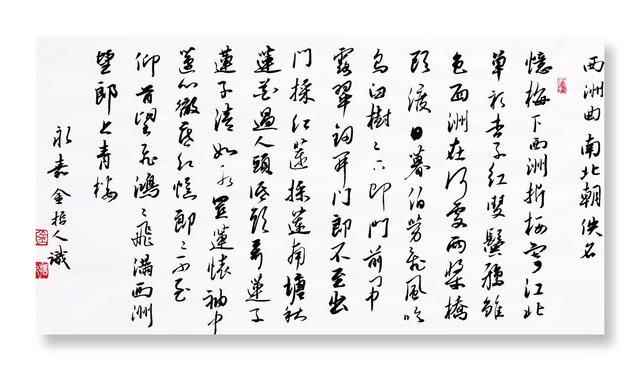 西洲曲 南北朝 佚名
憶梅下西洲折梅寄江北
單衫杏子紅雙鬢鴉雛
色西洲在何處兩槳橋
頭渡日暮伯勞飛風吹
烏臼樹〻下即門前門中
露翠鈿開門郎不至出
門採紅蓮採蓮南塘秋
蓮花過人頭低頭弄蓮子
蓮子清如水置蓮懷袖中
蓮心徹底紅憶郎〻不至
仰首望飛鴻〻飛滿西洲
望郎上青樓
永嘉金招人識